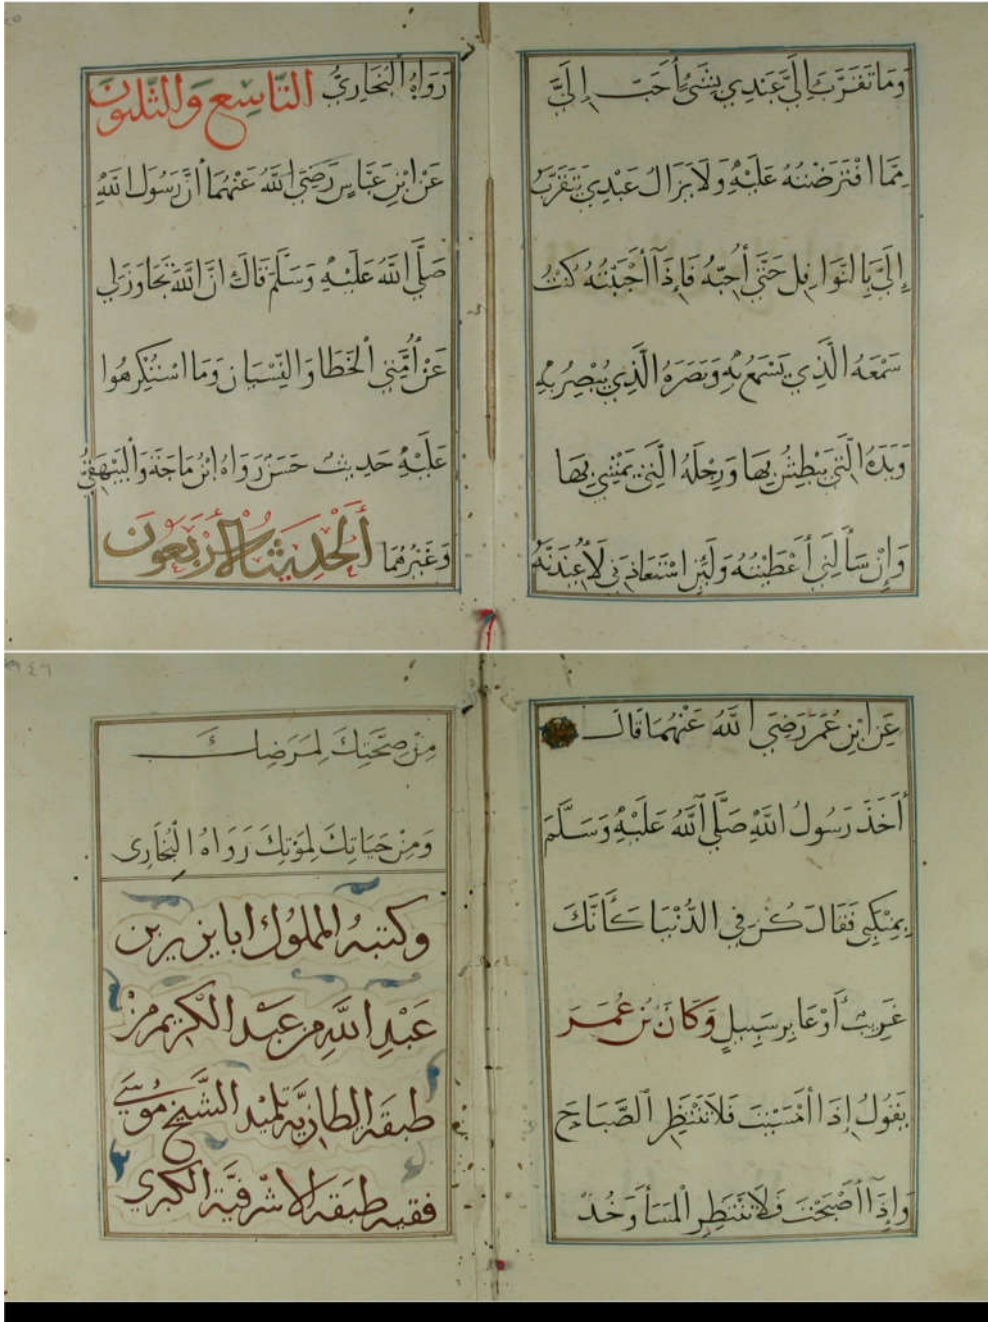 وَمَا تَقَرَّبَ إِلَيَّ عَبْدِي بِشَيْءٍ أَحَبَّ إِلَيَّ
مِمَّا افْتَرَضْتُهُ عَلَيْهِ وَلَا يَزَالُ عَبْدِي يَتَقَرَّبُ
إِلَيَّ بِالنَّوَافِلِ حَتَّى أُحِبَّهُ فَإِذَا أَحْبَبْتُهُ كُنْتُ
سَمْعَهُ الَّذِي يَسْمَعُ بِهِ وَبَصَرَهُ الَّذِي يُبْصِرُ بِهِ
وَيَدَهُ الَّتِي يَبْطِشُ بِهَا وَرِجْلَهُ الَّتِي يَمْشِي بِهَا
وَإِنْ سَأَلَنِي أَعْطَيْتُهُ وَلَئِنِ اسْتَعَاذَنِي لَأُعِيذَنَّهُ
رَوَاهُ الْبُخَارِيُّ التَّاسِعُ وَالثَّلَثُونَ
عَنْ ابْنِ عَبَّاسٍ رَضِيَ اللَّهُ عَنْهُمَا أَنَّ رَسُولَ اللَّهِ
صَلَّى اللَّهُ عَلَيْهِ وَسَلَّمَ قَالَ إِنَّ اللَّهَ تَجَاوَزَ لِي
عَنْ أُمَّتِي الْخَطَا وَالنِّسْيَانَ وَمَا اسْتُكْرِهُوا
عَلَيْهِ حَدِيثٌ حَسَنٌ رَوَاهُ ابْنُ مَاجَةَ وَالْبَيْهَقِيُّ
وَغَيْرُهُمَا الْحَدِيثُ الْأَرْبَعُونَ
عَنِ ابْنِ عُمَرَ رَضِيَ اللَّهُ عَنْهُمَا قَالَ
أَخَذَ رَسُولُ اللَّهِ صَلَّى اللَّهُ عَلَيْهِ وَسَلَّمَ
بِمَنْكِبِي فَقَالَ كُنْ فِي الدُّنْيَا كَأَنَّكَ
غَرِيبٌ أَوْ عَابِرُ سَبِيلٍ وَكَانَ بْنُ عُمَرَ
يَقُولُ إِذَا أَمْسَيْتَ فَلَا تَنْتَظِرِ الصَّبَاحَ
وَإِذَا أَصْبَحْتَ فَلَا تَنْتَظِرِ الْمَسَأَ وَخُذْ
مِنْ صِحَّتِكَ لِمَرَضِكَ
وَمِنْ حَيَاتِكَ لِمَوْتِكَ رَوَاهُ الْبُخَارِى
وكتبه المملوك
عَبْدِ اللَّهِ من عبد الكريم من
طبقه الطازية تلميذ الشيخ موسى
فقيه طبقه الاشرفية الكبرى